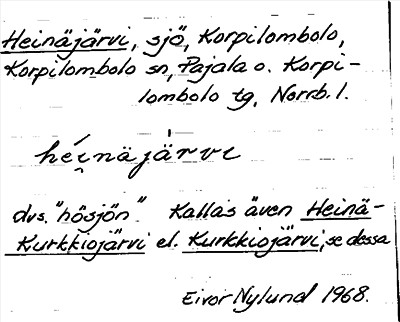 Heinäjärvi, sjö, Korpilombolo,
Korpilombolo sn, Pajala o. Korpi-
lombolo tg, Norrb. l.
héi̯näjä̀rvi
dvs. "hösjön". Kallas även Heinä-
Kurkkiojärvi el. Kurkkiojärvi, se dessa
Eivor Nylund 1968.